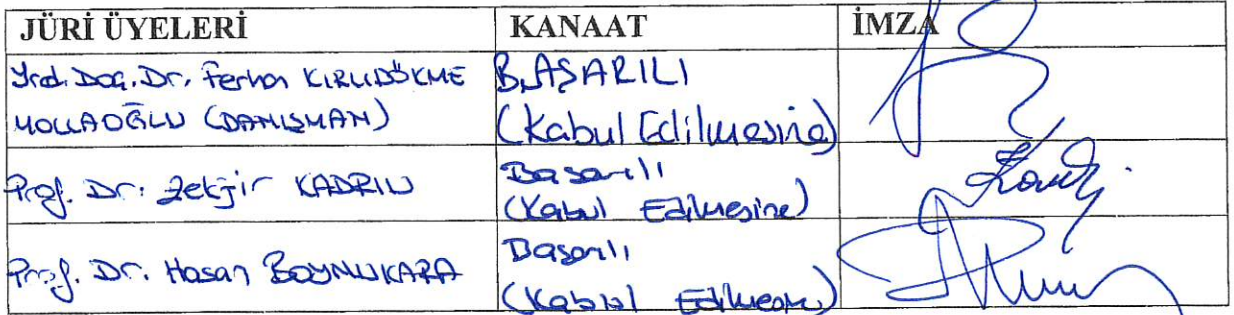 JÜRİ ÜYELERİ KANAAT İMZA
Yrd. Doç. Dr. Ferhan KIRLIDÖKME BAŞARILI
MOLLAOĞLU (DANIŞMAN) (Kabul Edilmesine)
Prof. Dr. Zekjir KADRIU Başarılı
(Kabul Edilmesine)
Prof. Dr. Hasan BOYNUKARA Başarılı
(Kabul Edilmesine)